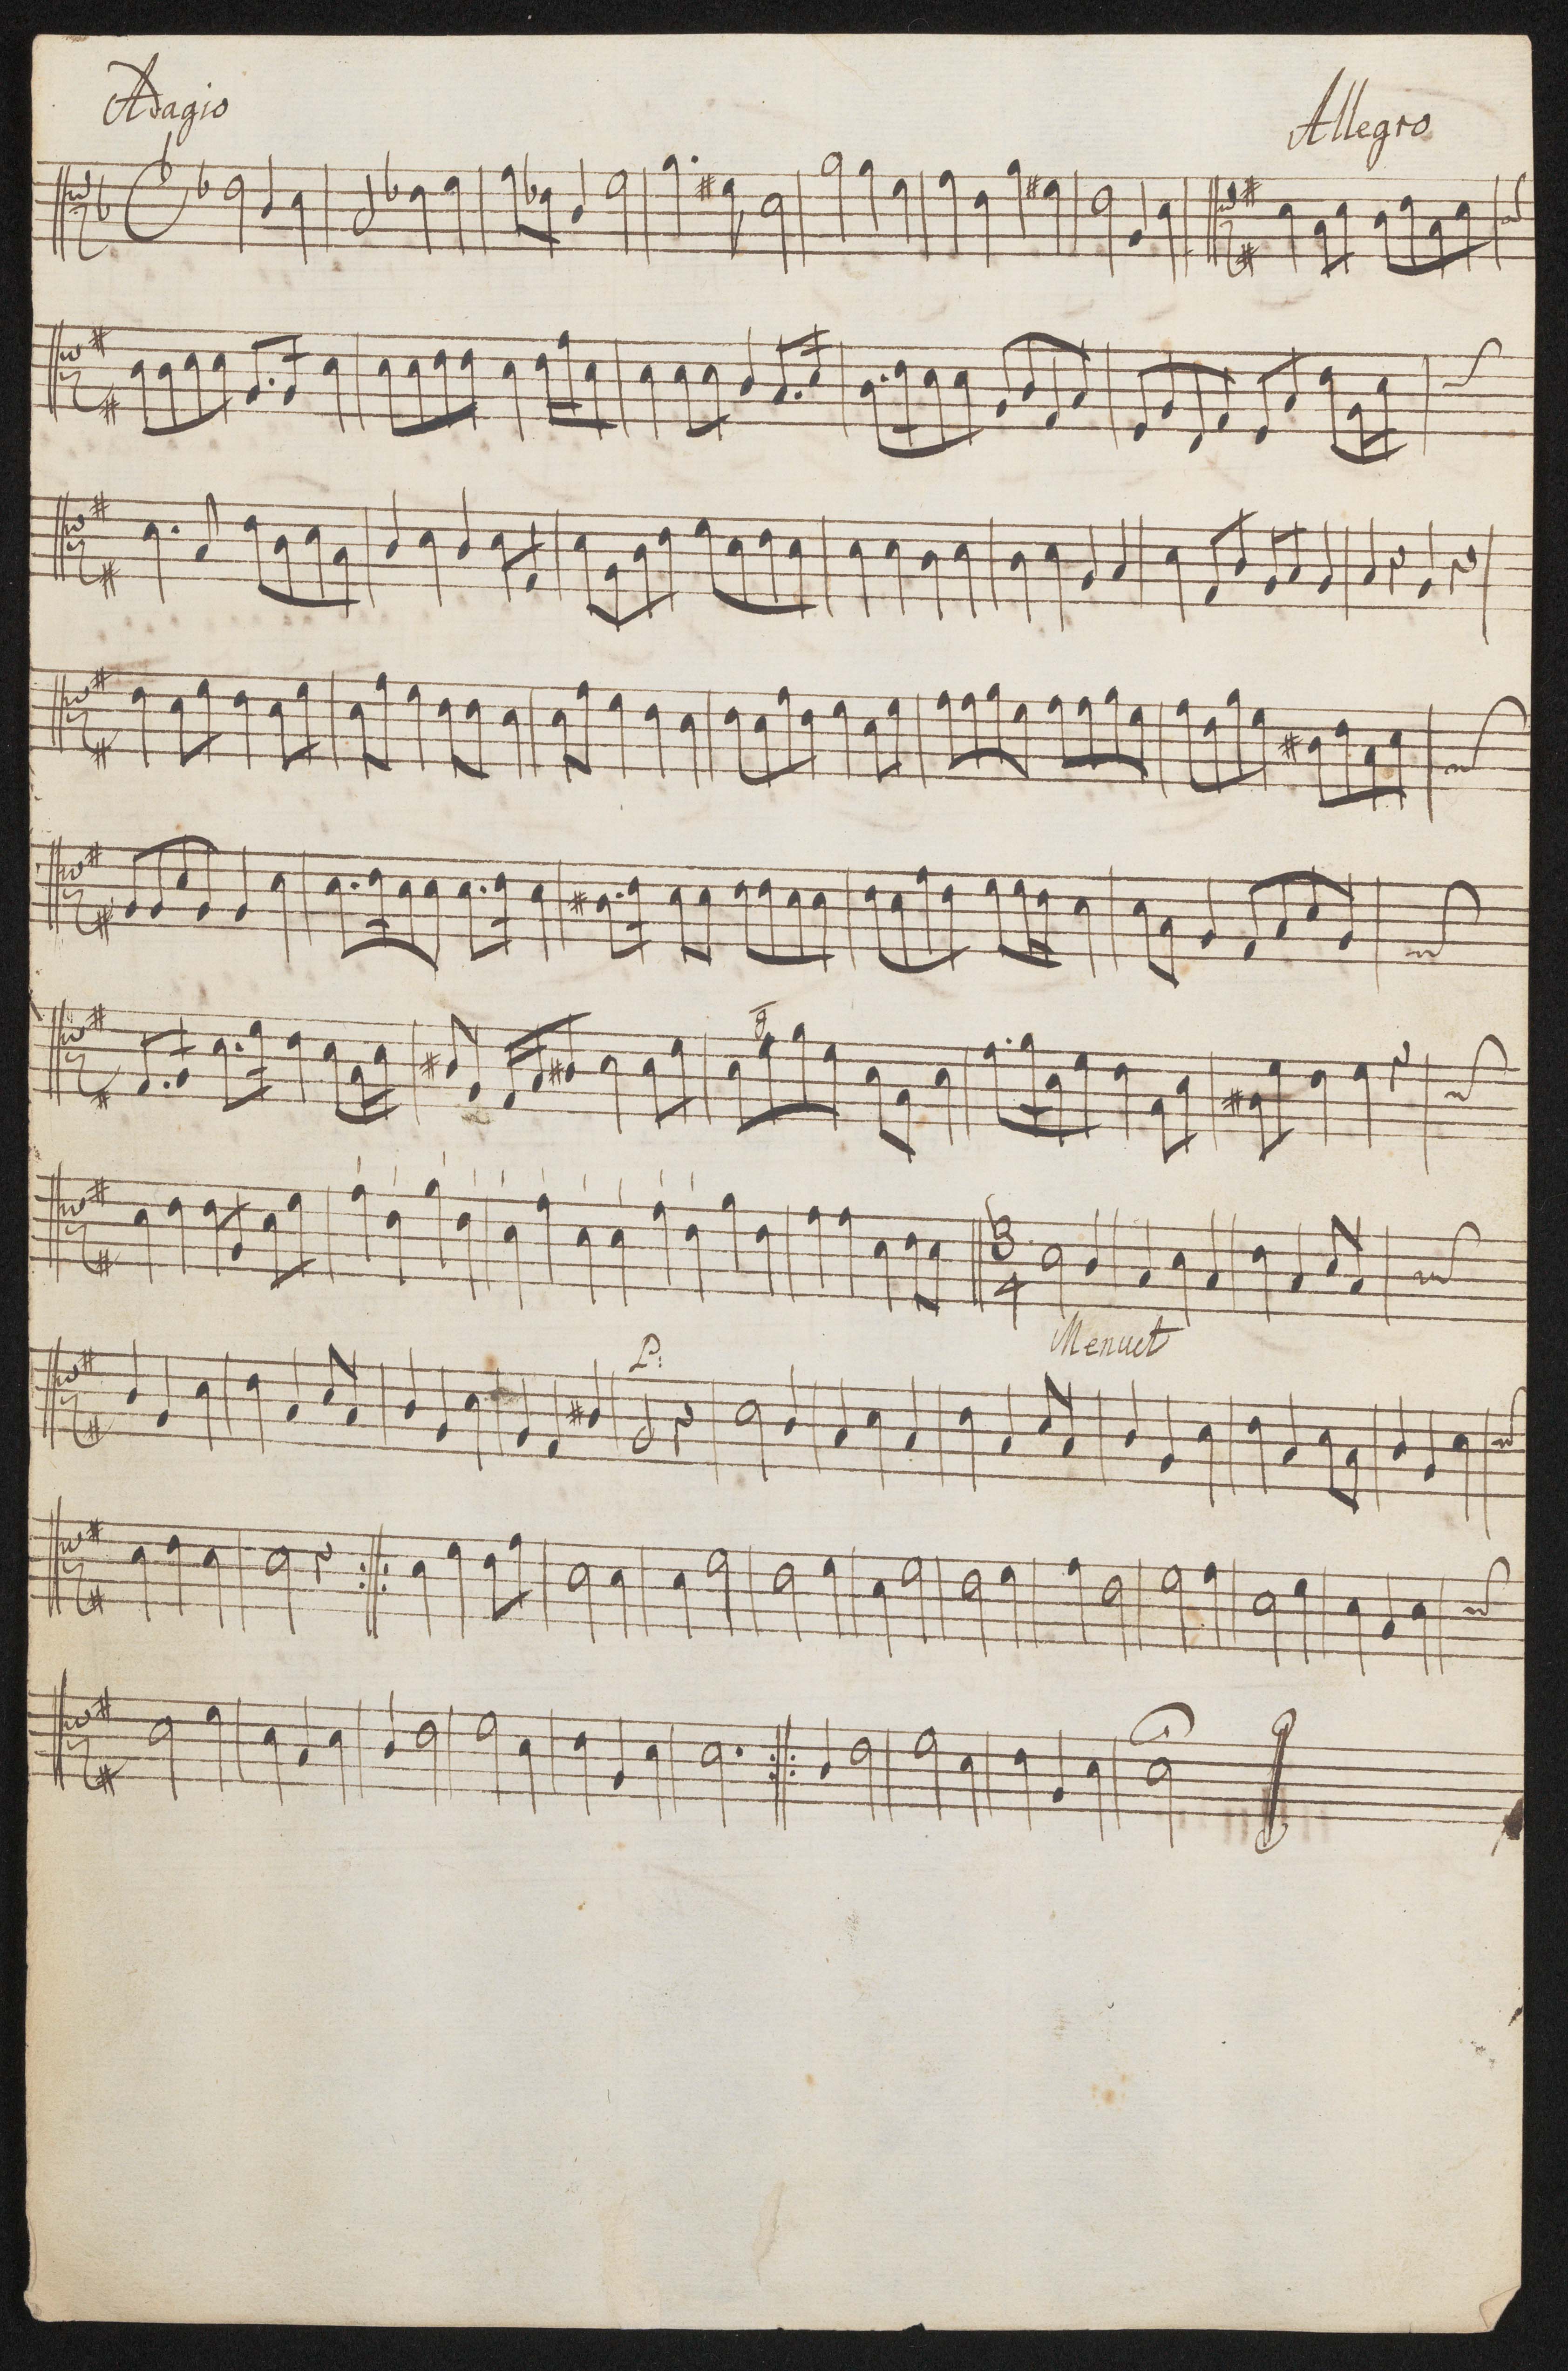 Adagio
Allegro
3
4
Menuet
P: